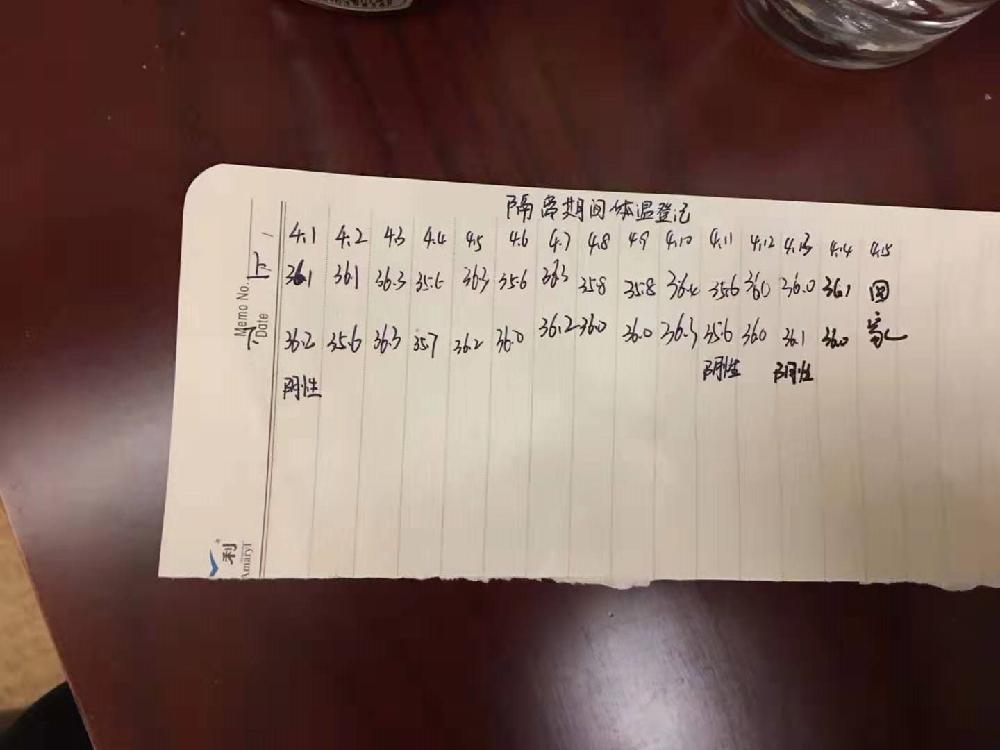 隔离期间体温登记
4.1 4.2 4.3 4.4 4.5 4.6 4.7 4.8 4.9 4.10 4.11 4.12 4.13 4.14 4.15
上 36.1 36.1 36.3 35.6 36.3 35.6 36.3 35.8 35.8 36.4 35.6 36.0 36.0 36.1 回
下 36.2 35.6 36.3 35.7 36.2 36.0 36.2 36.0 36.0 36.3 35.6 36.0 36.1 36.0 家
阴性 阴性 阴性
Memo No.
Date
利
Amaryl